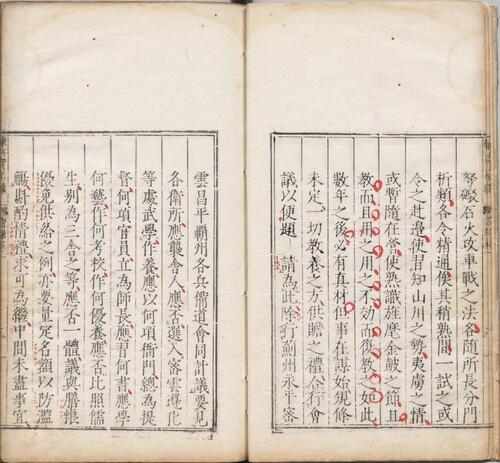 弩礮石火攻車戰之法各随所長分門
析類各令精通俟其稍熟間一試之或
令之赴邊使習知山川之勢夷虜之情
或暫隨在營使熟識旌麾金鼓之節且
教而且用之用之不効而復教之如此
數年之後必有真材但事在謀始規條
未定一切教養之方供贍之禮合行會
議以便題請為此除行薊州永平密
雲昌平霸州各兵備道會同計議要見
各衛所應襲舍人應否選入密雲遵化
等處武學作養應以何項衙門總為提
督何項官員立為師長應習何書應學
何藝作何考校作何優養應否比照儒
生別為三舍之等應否一體議與廩餼
優免供給之例亦要量定名額以防濫
觴斟酌情禮求可為繼中間未盡事宜